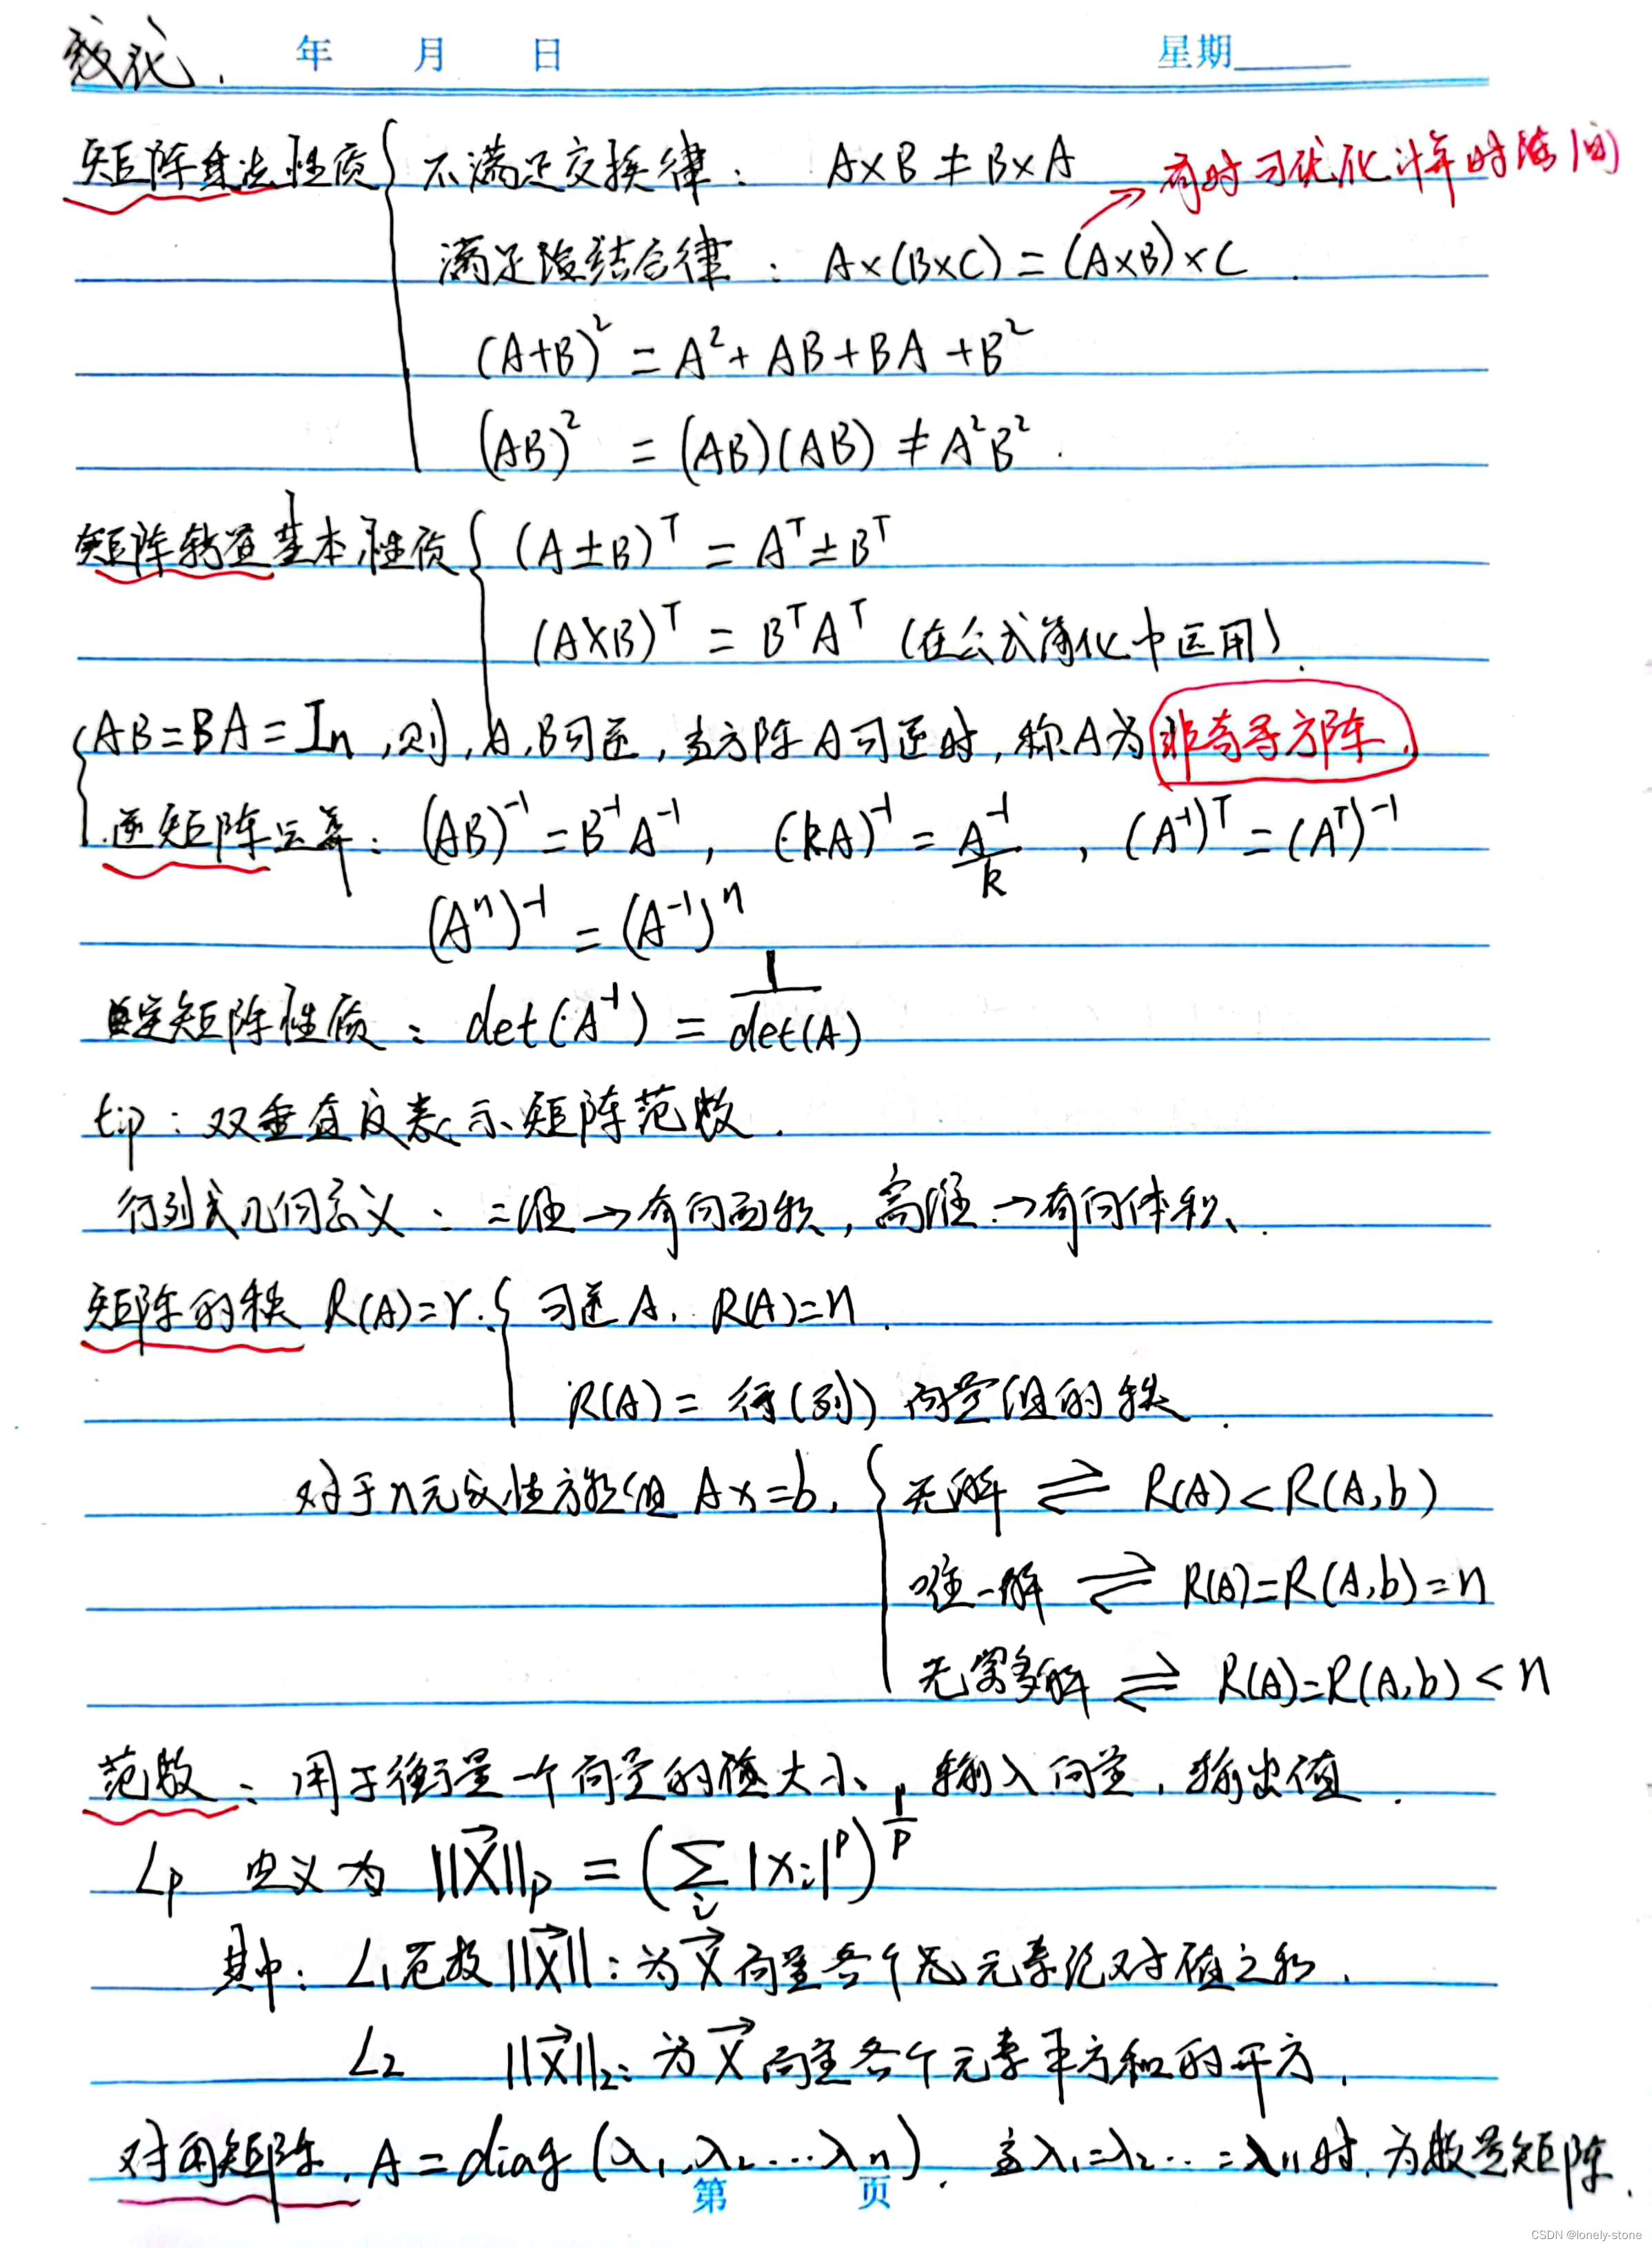 线代.
年 月 日 星期
矩阵乘法性质 { 不满足交换律: A×B ≠ B×A
→有时可优化计算时间
满足结合律: A×(B×C) = (A×B)×C.
(A+B)² = A² + AB + BA + B²
(AB)² = (AB)(AB) ≠ A²B².
矩阵转置基本性质 { (A±B)ᵀ = Aᵀ±Bᵀ
(A×B)ᵀ = BᵀAᵀ (在公式简化中运用).
{ AB=BA=In, 则, A,B可逆, 当方阵A可逆时, 称A为非奇异方阵.
逆矩阵运算: (AB)⁻¹=B⁻¹A⁻¹, (kA)⁻¹=A⁻¹/k, (A⁻¹)ᵀ=(Aᵀ)⁻¹
(Aⁿ)⁻¹ = (A⁻¹)ⁿ
矩阵性质: det(A⁻¹) = 1/det(A)
tip: 双垂直表示矩阵范数.
行列式几何意义: 二维→有向面积, 高维→有向体积.
矩阵的秩 R(A)=r. { 可逆A, R(A)=n.
R(A) = 行(列)向量组的秩.
对于n元线性方程组 Ax=b, { 无解 ⇌ R(A)<R(A,b)
唯一解 ⇌ R(A)=R(A,b)=n
无穷多解 ⇌ R(A)=R(A,b)<n
范数: 用于衡量一个向量的值大小, 输入向量, 输出值.
Lp 定义为 ||X⃗||p = (∑ᵢ|xᵢ|ᵖ)^(1/p)
其中: L₁范数||X⃗||: 为X⃗向量各个元素绝对值之和.
L₂ ||X⃗||₂: 为X⃗向量各个元素平方和的开方.
对角矩阵. A = diag(λ₁,λ₂...λn). 当λ₁=λ₂...=λn时, 为数量矩阵.
第 页
CSDN @lonely-stone